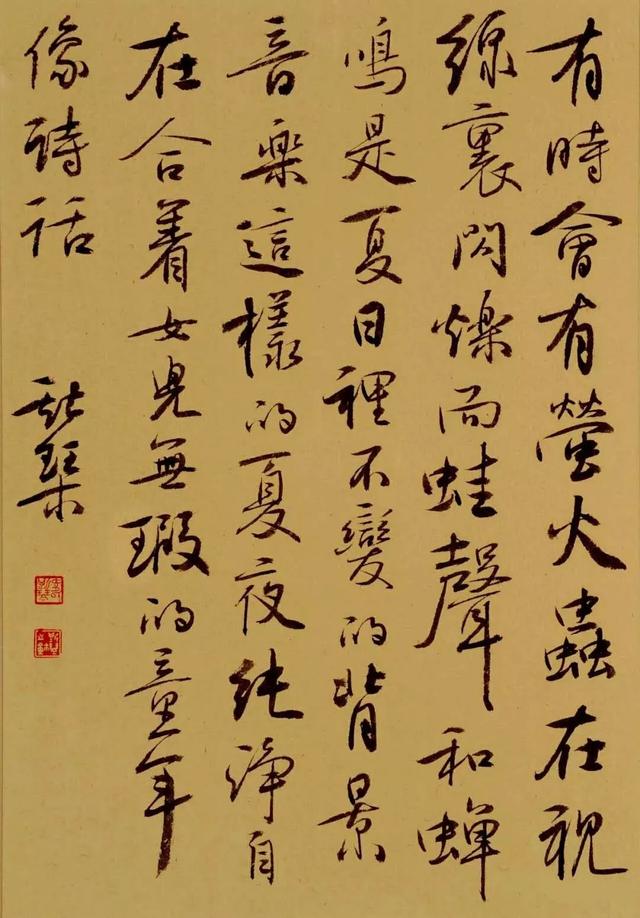 有時會有螢火蟲在視
線裏閃爍而蛙聲和蟬
鳴是夏日裡不變的背景
音樂這樣的夏夜純淨自
在合着女兒無瑕的童年
像詩話